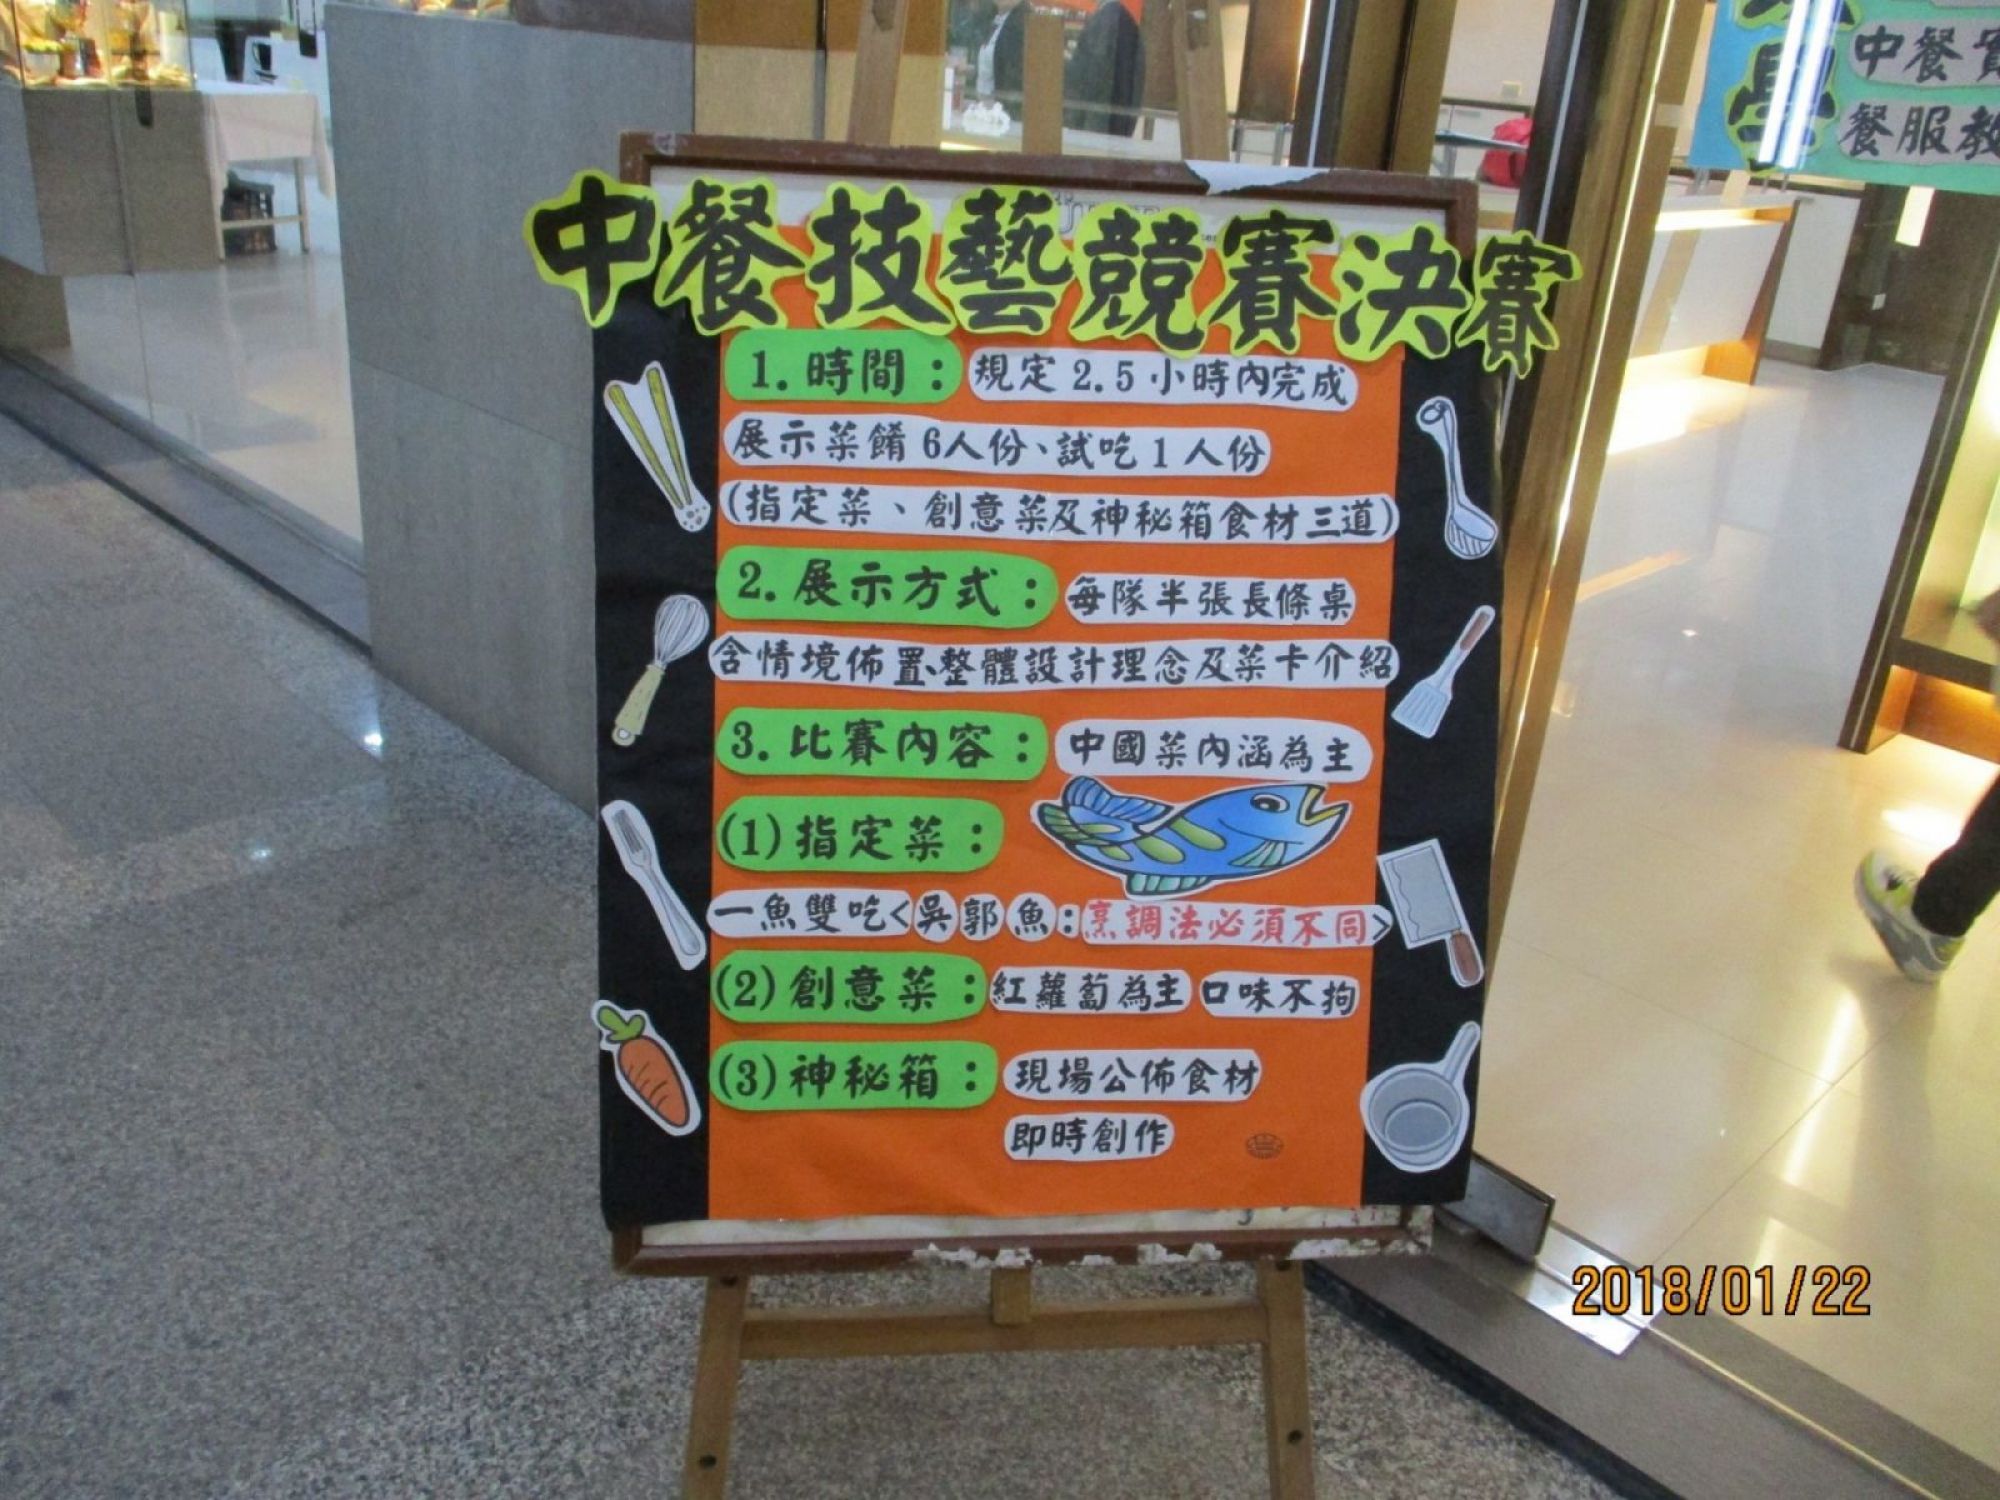 中餐技藝競賽決賽
1.時間：規定2.5小時內完成
展示菜餚6人份、試吃1人份
(指定菜、創意菜及神秘箱食材三道)
2.展示方式：每隊半張長條桌
含情境佈置、整體設計理念及菜卡介紹
3.比賽內容：中國菜內涵為主
(1)指定菜：
一魚雙吃<吳郭魚:烹調法必須不同>
(2)創意菜：紅蘿蔔為主 口味不拘
(3)神秘箱：現場公佈食材
即時創作
中餐實
餐服教
2018/01/22